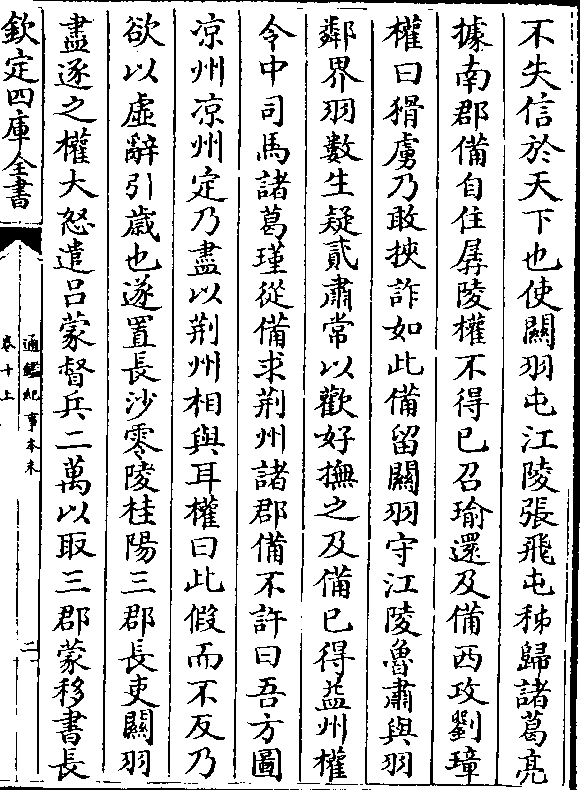 不失信於天下也使關羽屯江陵張飛屯秭歸諸葛亮
據南郡備自住孱陵權不得已召瑜還及備西攻劉璋
權曰猾虜乃敢挾詐如此備留關羽守江陵魯肅與羽
鄰界羽數生疑貳肅常以歡好撫之及備已得益州權
令中司馬諸葛瑾從備求荆州諸郡備不許曰吾方圖
凉州凉州定乃盡以荆州相與耳權曰此假而不反乃
欲以虛辭引歲也遂置長沙零陵桂陽三郡長吏關羽
盡逐之權大怒遣呂蒙督兵二萬以取三郡蒙移書長
欽定四庫全書
通鑑紀事本末
卷十上
二